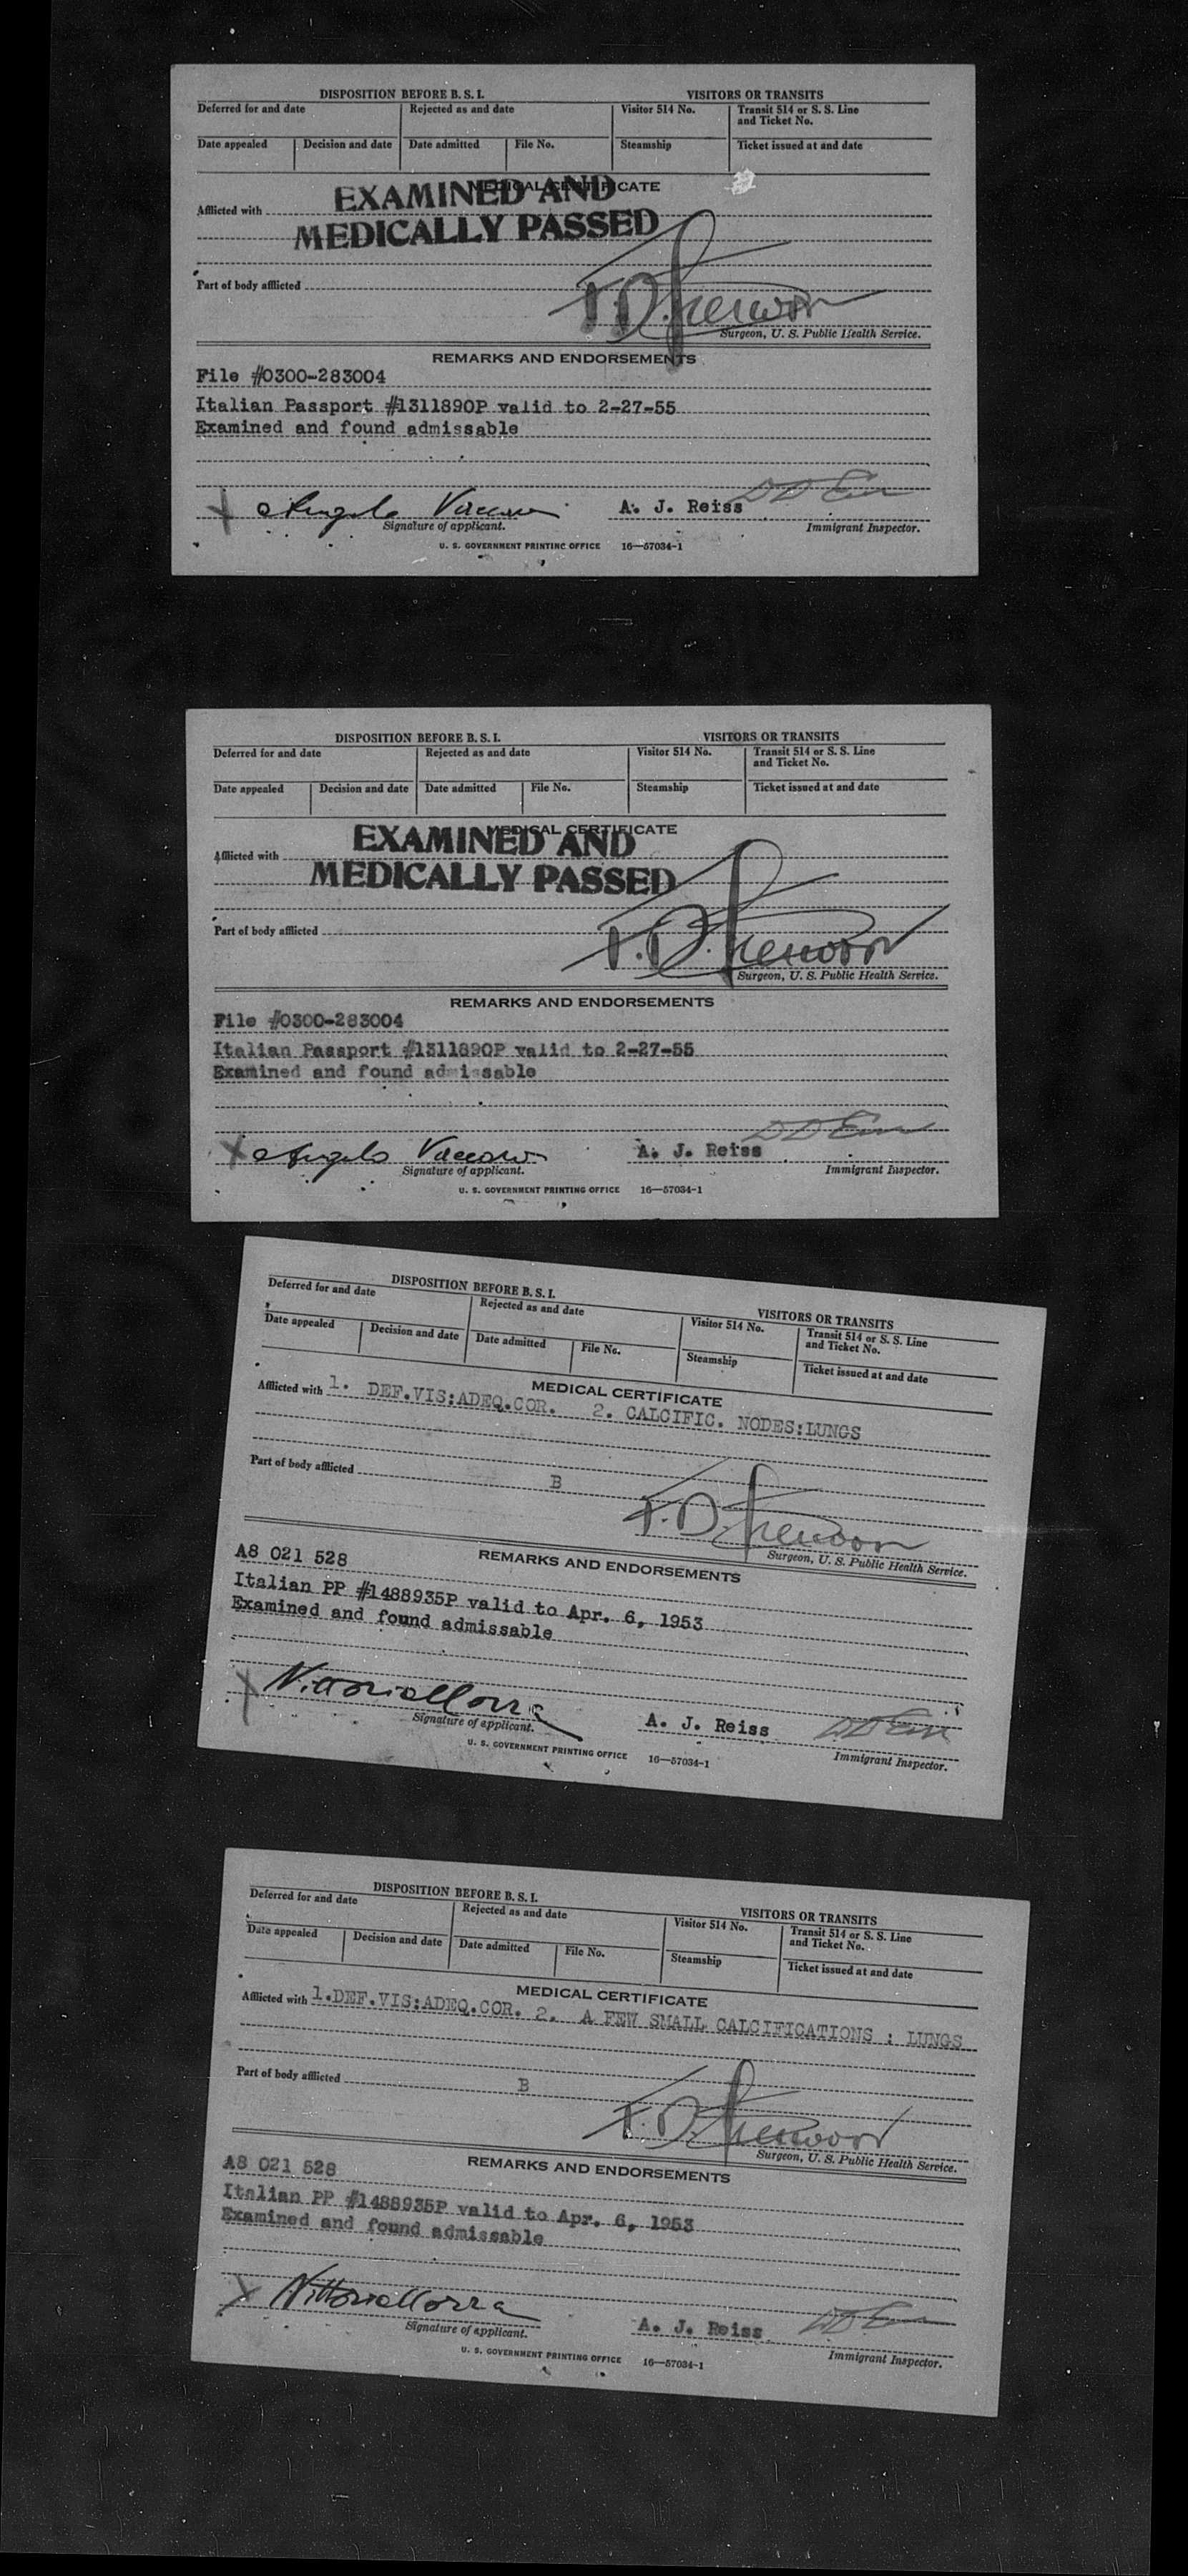 DISPOSITION BEFORE B. S. I. VISITORS OR TRANSITS
Deferred for and date Rejected as and date Visitor 514 No. Transit 514 or S. S. Line and Ticket No.
Date appealed Decision and date Date admitted File No. Steamship Ticket issued at and date
MEDICAL CERTIFICATE
EXAMINED AND
Afflicted with
MEDICALLY PASSED
Part of body afflicted
Surgeon, U. S. Public Health Service.
REMARKS AND ENDORSEMENTS
File #0300-283004
Italian Passport #1311890P valid to 2-27-55
Examined and found admissable
X Angelo Vaccaro A. J. Reiss
Signature of applicant. Immigrant Inspector.
U. S. GOVERNMENT PRINTING OFFICE 16—57034-1
DISPOSITION BEFORE B. S. I. VISITORS OR TRANSITS
Deferred for and date Rejected as and date Visitor 514 No. Transit 514 or S. S. Line and Ticket No.
Date appealed Decision and date Date admitted File No. Steamship Ticket issued at and date
MEDICAL CERTIFICATE
EXAMINED AND
Afflicted with
MEDICALLY PASSED
Part of body afflicted
Surgeon, U. S. Public Health Service.
REMARKS AND ENDORSEMENTS
File #0300-283004
Italian Passport #1311890P valid to 2-27-55
Examined and found admissable
X Angelo Vaccaro A. J. Reiss
Signature of applicant. Immigrant Inspector.
U. S. GOVERNMENT PRINTING OFFICE 16—57034-1
DISPOSITION BEFORE B. S. I. VISITORS OR TRANSITS
Deferred for and date Rejected as and date Visitor 514 No. Transit 514 or S. S. Line and Ticket No.
Date appealed Decision and date Date admitted File No. Steamship Ticket issued at and date
MEDICAL CERTIFICATE
Afflicted with 1. DEF.VIS:ADEQ.COR. 2. CALCIFIC. NODES:LUNGS
Part of body afflicted B
Surgeon, U. S. Public Health Service.
A8 021 528 REMARKS AND ENDORSEMENTS
Italian PP #1488935P valid to Apr. 6, 1953
Examined and found admissable
X A. J. Reiss
Signature of applicant. Immigrant Inspector.
U. S. GOVERNMENT PRINTING OFFICE 16—57034-1
DISPOSITION BEFORE B. S. I. VISITORS OR TRANSITS
Deferred for and date Rejected as and date Visitor 514 No. Transit 514 or S. S. Line and Ticket No.
Date appealed Decision and date Date admitted File No. Steamship Ticket issued at and date
MEDICAL CERTIFICATE
Afflicted with 1.DEF.VIS:ADEQ.COR. 2. A FEW SMALL CALCIFICATIONS : LUNGS
Part of body afflicted B
Surgeon, U. S. Public Health Service.
A8 021 528 REMARKS AND ENDORSEMENTS
Italian PP #1488935P valid to Apr. 6, 1953
Examined and found admissable
X A. J. Reiss
Signature of applicant. Immigrant Inspector.
U. S. GOVERNMENT PRINTING OFFICE 16—57034-1